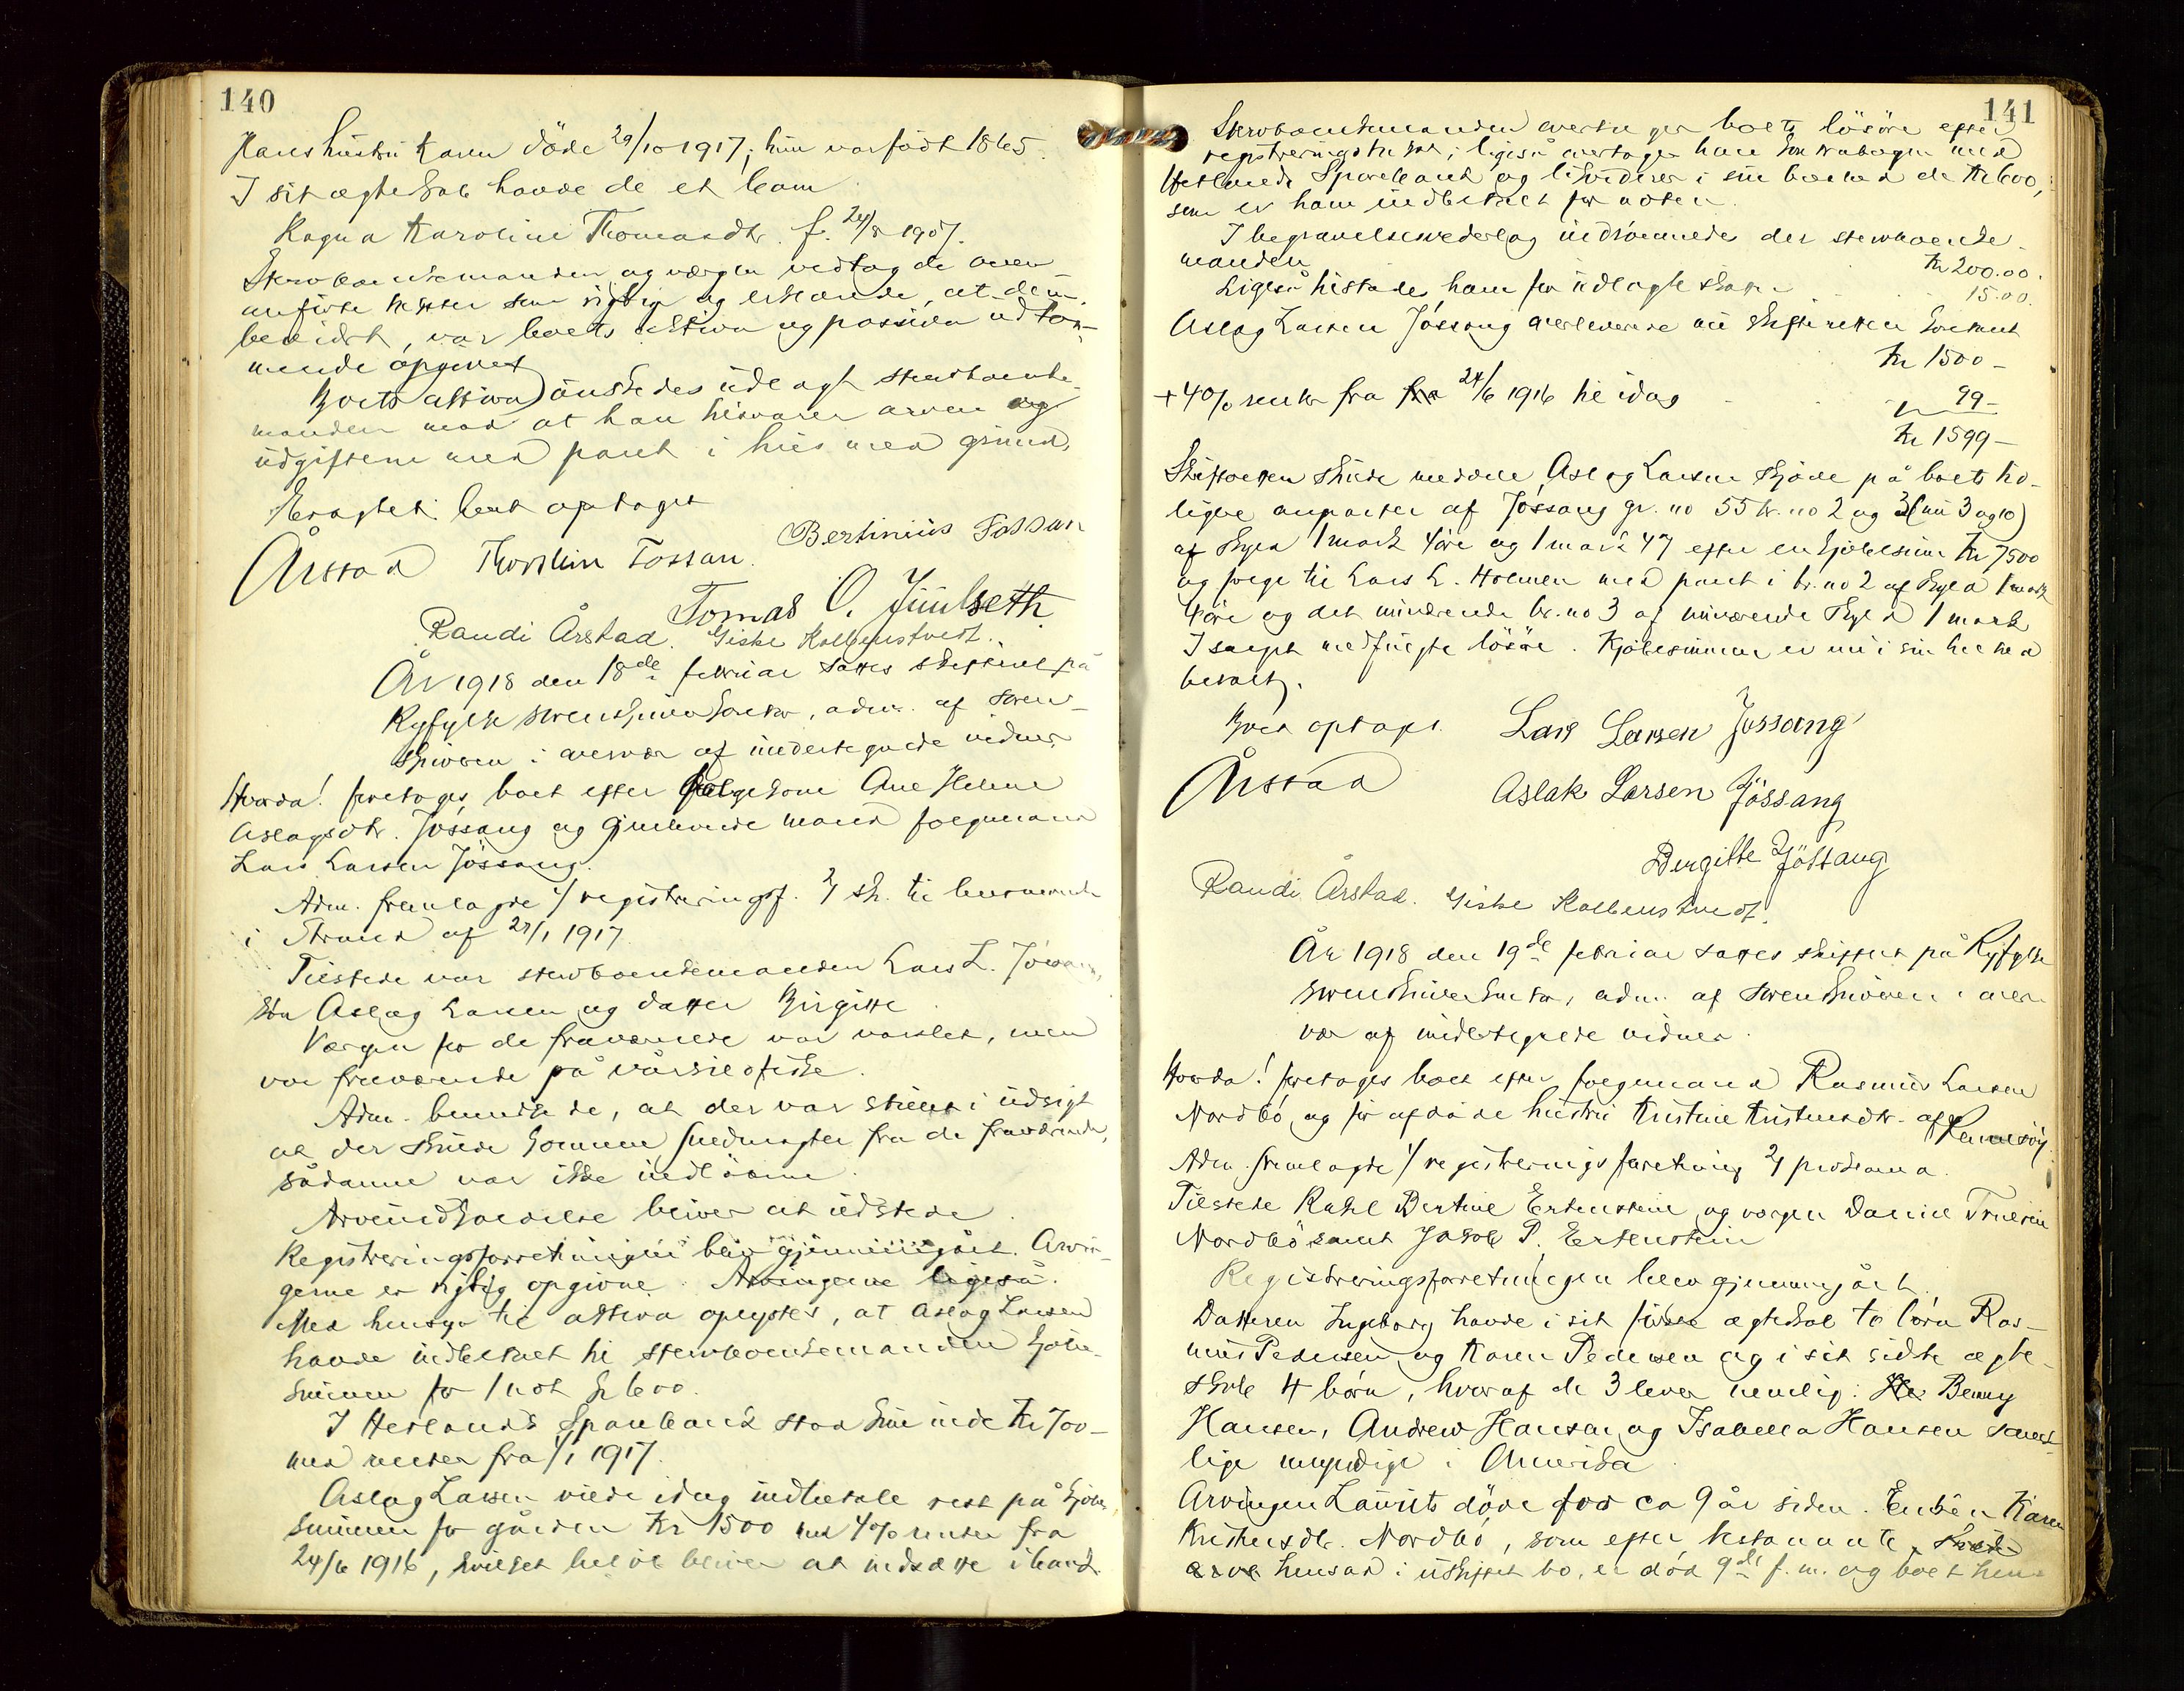 140
Hans hustru Karen döde 29/10 1917; hun var födt 1865.
I sit ægteskab havde de et barn
Ragna Karoline Thomasdtr. f. 24/8 1907.
Stervboenkemanden og værgen vedtog de oven
anförte poster som rigtige og erklærede, at dem
bevidst, var boets aktiva og passiva udtöm-
mende opgivet
Boets aktiva önskedes udlagt stervboenke-
manden mod at han tilsvarer arven og
udgifterne med pant i hus med grund.
Eragtet: boet optaget
Årstad Thorstein Fossan. Bertinius Fossan
Tomas O. Juulseth
Randi Årstad. Giske Kolbenstvedt.
År 1918 den 18de februar sattes skifteret på
Ryfylke sorenskriverkontor, adm. af soren-
skriveren i overvær af undertegnede vidner
Hvorda! foretoges boet efter folgekone Ane Helene
Aslagsdtr. Jössang og gjenlevende mand folgemand
Lars Larsen Jössang.
Adm. fremlagde 1/ registreringsf. 2/ sk. til lensmanden
i Strand af 29/1 1917
Tilstede var stervboenkemanden Lars L. Jössang,
sön Aslag Larsen og datter Birgitte
Værgen for de fraværende var varslet, men
var fraværende på vårsildfiske.
Adm. bemerkede, at der var stillet i udsigt
at der skulde komme fuldmagter fra de fraværende,
sådanne var ikke indkomne
Arveindkaldelse bliver at udstede
Registreringsforretningen blev gjennemgået. Arvin-
gerne er rigtig opgivne. Arvingerne ligeså.
Med hensyn til aktiva oplystes, at Aslag Larsen
havde indbetalt til stervboenkemanden kjöbe-
summen for 1 not kr 600.
I Hetlands Sparebank stod kun inde Kr 700-
med renter fra 1/1 1917.
Aslag Larsen vilde idag indbetale rest på kjöbe
summen for gården Kr 1500 med 4% renter fra
24/6 1916, hvilket belöb bliver at indsætte i bank
141
Stervboenkemanden overtager boets lösöre efter
registreringstakst; ligeså overtager han bankbogen med
Hetlands Sparebank og likviderer i sin boslod de Kr 600,
som er ham indbetalt for noten.
I begravelsesvederlag indrömmedes der stervboenke-
manden Kr 200.00.
Ligeså tilstodes ham for udlagte skatter 15.00.
Aslag Larsen Jössang overleverede nu skifteretten kontant
Kr 1500 -
+ 4% renter fra fra 24/6 1916 til idag 99 -
Kr 1599 -
Skifteretten skulde meddele Aslag Larsen skjöde på boets tid-
ligere anparter af Jössang gr. no 55 br. no 2 og 3 (nu 3 og 10)
af skyld 1 mark 4 öre og 1 mark 47 efter en kjöbesum Kr 7500
og folge til Lars L. Holmen med pant i br. no 2 af skyld 1 mark
4 öre og det nuværende br. no 3 af nuværende skyld 1 mark
I salget medfulgte lösöre. Kjöbesummen er nu i sin helhed
betalt.
Boet optaget. Lars Larsen Jössang
Årstad Aslak Larsen Jössang
Birgitte Jössang
Randi Årstad. Giske Kolbenstvedt.
År 1918 den 19de februar sattes skifteret på Ryfylke
sorenskriverkontor, adm. af sorenskriveren i over-
vær af undertegnede vidner.
Hvorda! foretoges boet efter folgemand Rasmus Larsen
Nordbö og för afdöde hustru Kristine Kristensdtr. af Rennesöy.
Adm. fremlagde 1/ registreringsforretning 2/ proklama.
Tilstede Rakel Bertine Ertenstein og værgen Daniel Truelsen
Nordbö samt Jakob P. Ertenstein
Registreringsforretningen blev gjennemgået.
Datteren Ingeborg havde i sit förste ægteskab to börn Ras-
mus Pedersen og Karen Pedersen og i sit sidste ægte-
skab 4 börn, hvoraf de 3 lever nemlig: Benny
Hansen, Andrew Hansen og Isabella Hansen samt-
lige myndige i Amerika
Arvingen Laurits döde for ca 9 år siden. Enken Karen
Kristensdtr. Nordbö, som efter testamente
hensad i uskiftet bo, er död 9de f. m. og boet hen-